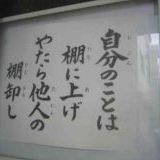 自分のことは
棚に上げ
やたら他人の
棚卸し